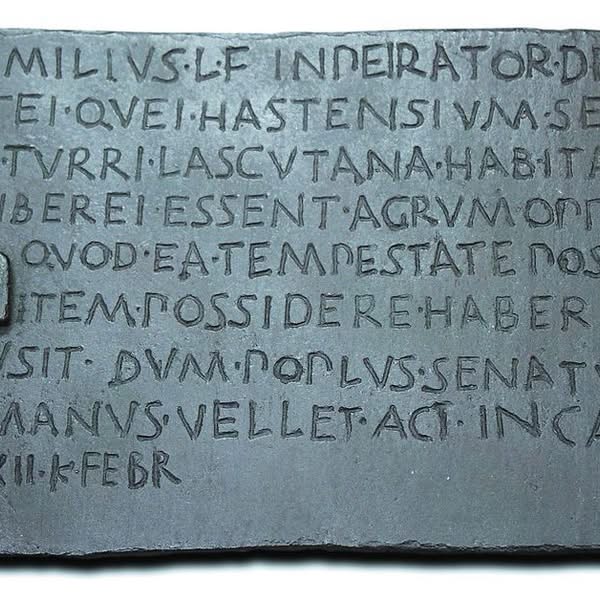 MILIVS·L·F INPEIRATOR·D
TEI·QVEI·HASTENSIVM·SE
·TVRRI·LASCVTANA·HABITA
IBEREI·ESSENT·AGRVM·OPP
QVOD·EA·TEMPESTATE POS
ITEM·POSSIDERE·HABER
VSIT· DVM·POPLVS·SENATV
MANVS·VELLET·ACT·IN CA
XII·K·FEBR